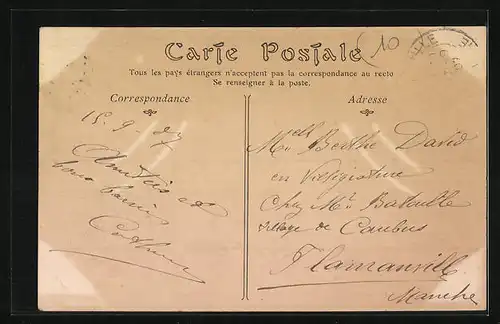 10
Carte Postale
Tous les pays étrangers n'acceptent pas la correspondance au recto
Se renseigner à la poste.
Correspondance
Adresse
15-9-
Amitiés et
bons baisers
Mlle Berthe David
en Villégiature
Chez Mr
village de
Flamanville
Manche